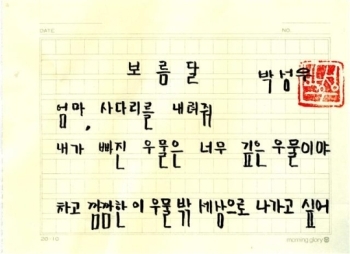 DATE
NO.
보름달
박성우
엄마, 사다리를 내려줘
내가 빠진 우물은 너무 깊은 우물이야
차고 깜깜한 이 우물 밖 세상으로 나가고 싶어
20·10
morning glory